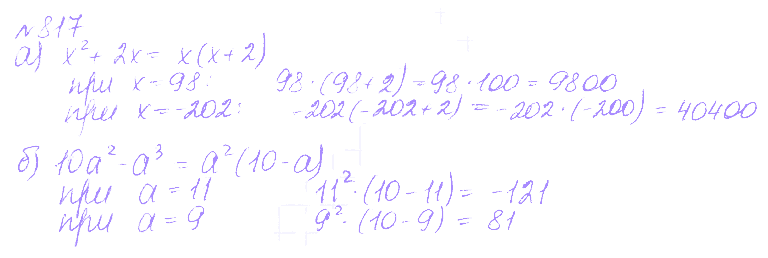 №817
а) x² + 2x = x(x+2)
при x = 98: 98·(98+2) = 98·100 = 9800
при x = -202: -202(-202+2) = -202·(-200) = 40400
б) 10a² - a³ = a²(10-a)
при a = 11 11²·(10-11) = -121
при a = 9 9²·(10-9) = 81